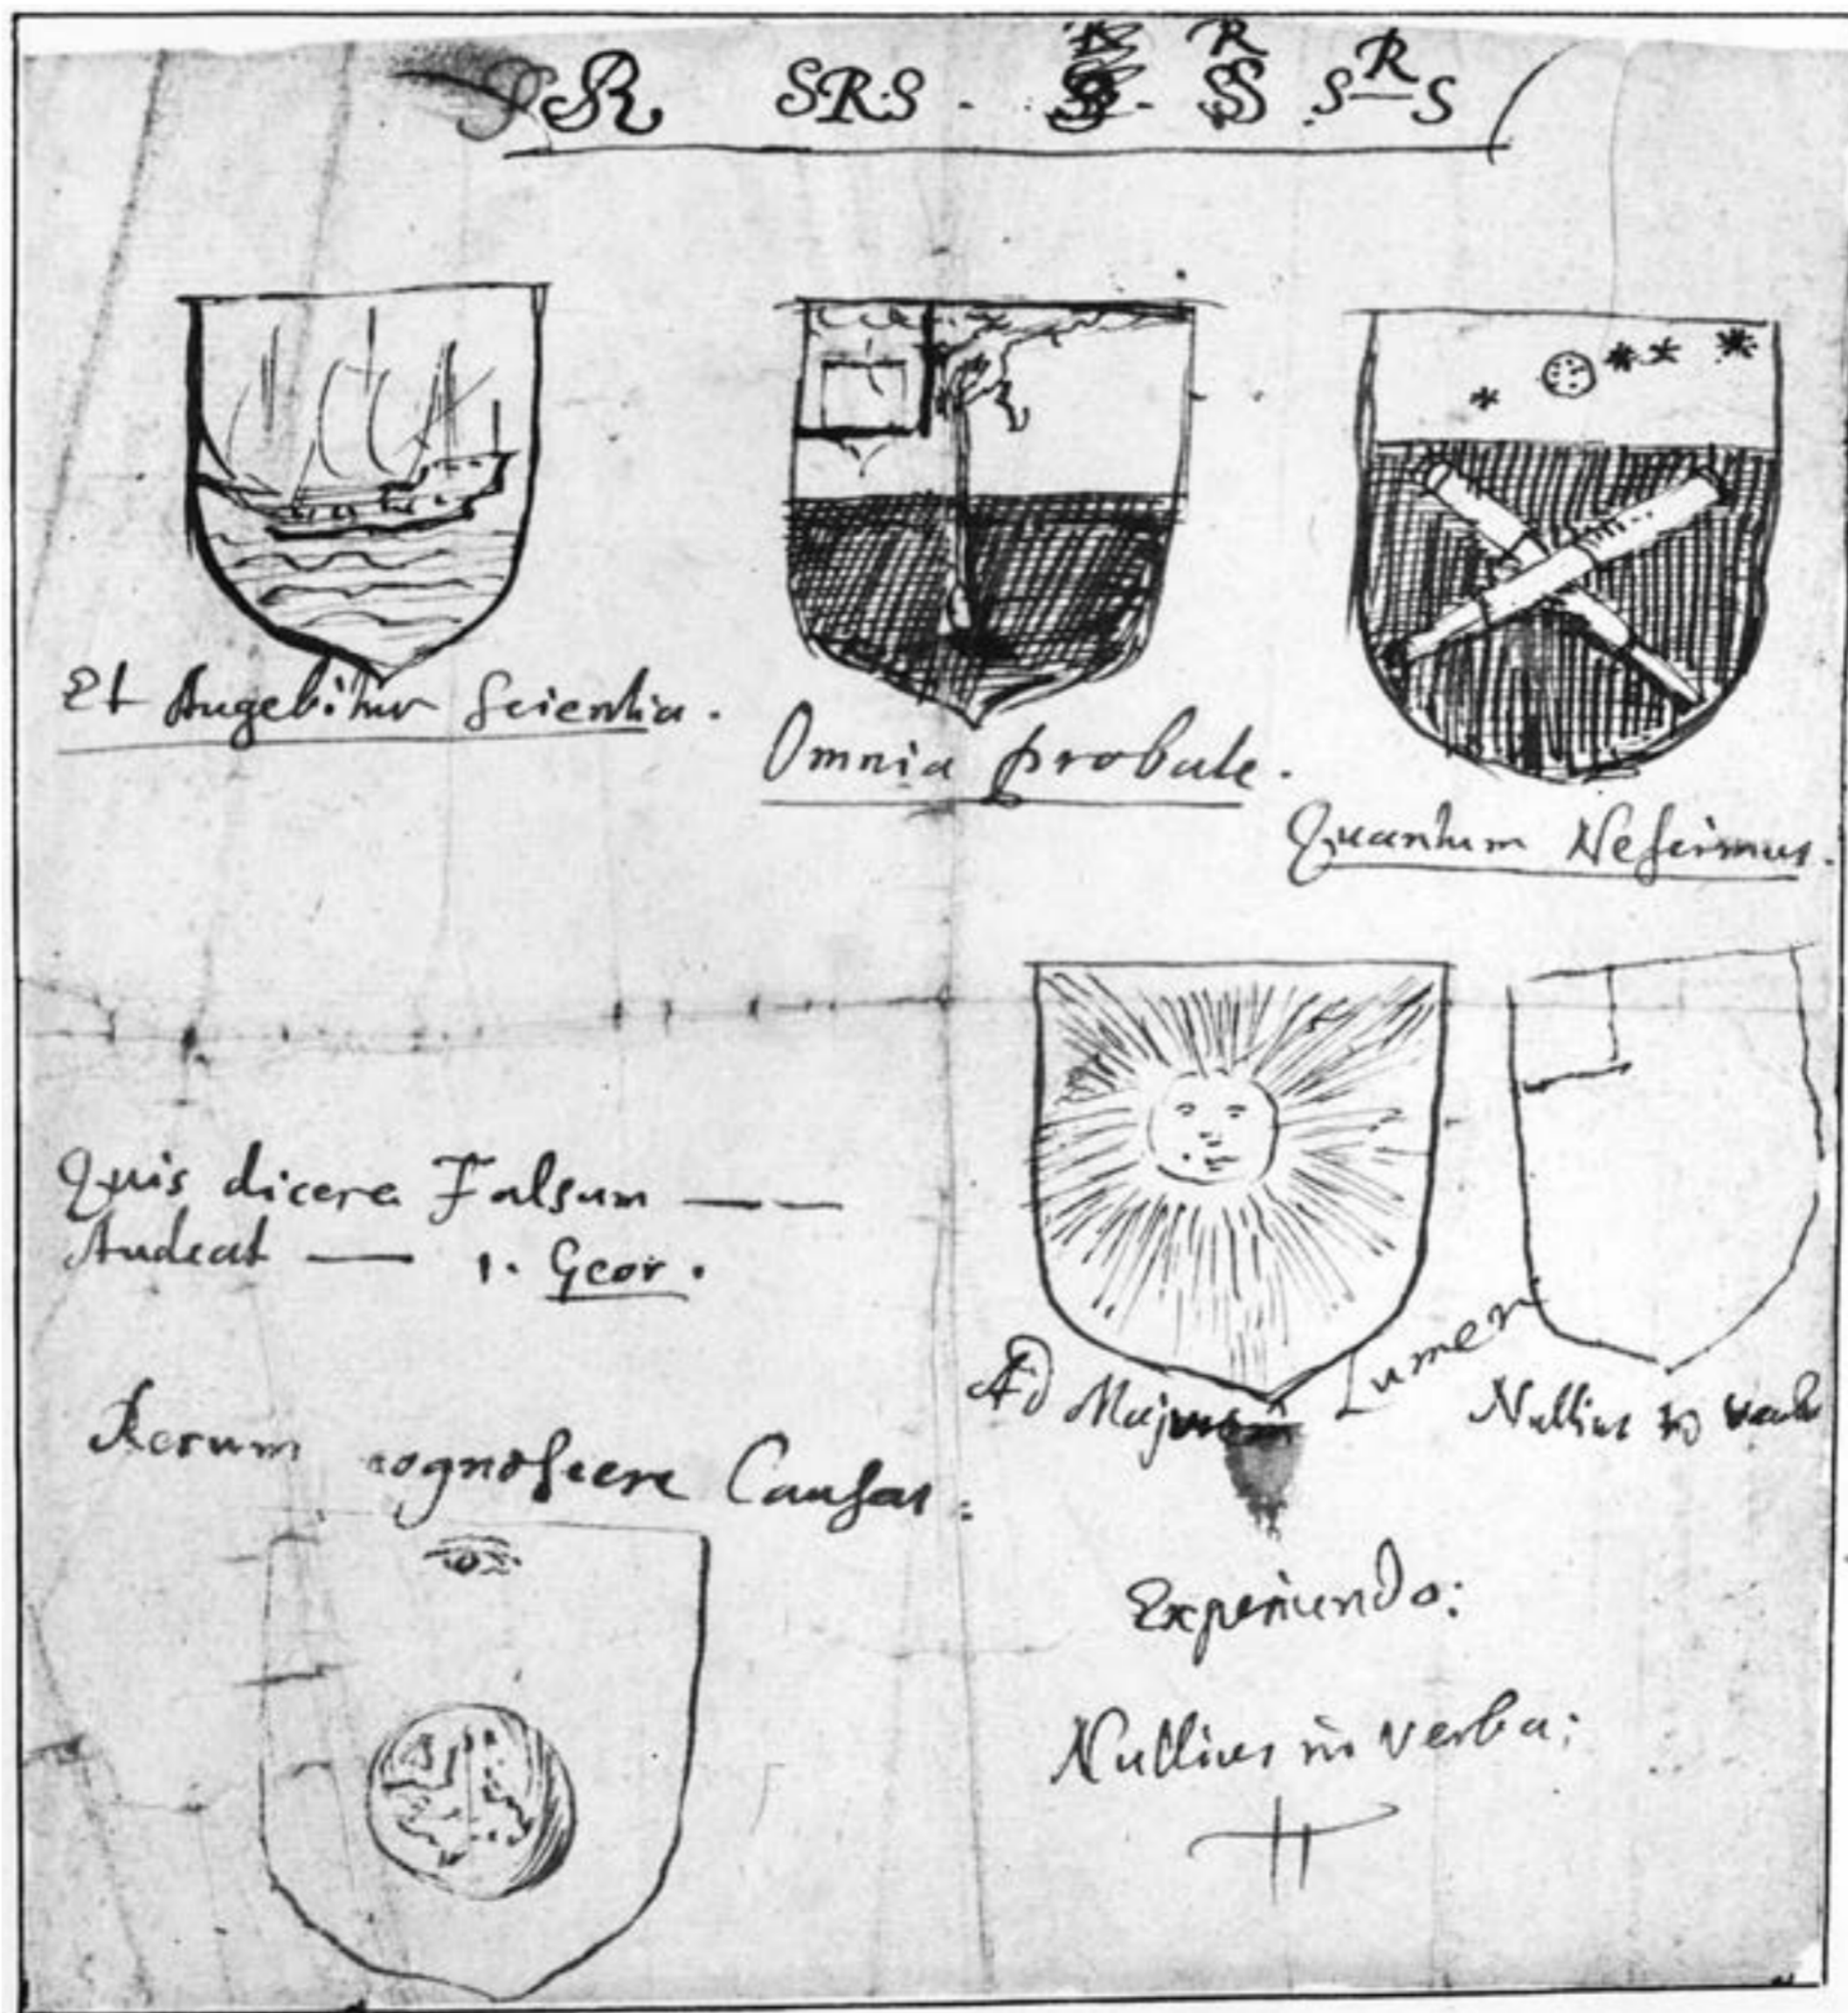 SR SRS . R SS S R S
Et Augebitur Scientia.
Omnia probate.
Quantum Nescimus.
Quis dicere Falsum — —
Audeat — 1. Geor.
Ad Majus Lumen
Nullius in verba
Rerum cognoscere Causas:
Experiendo:
Nullius in verba: